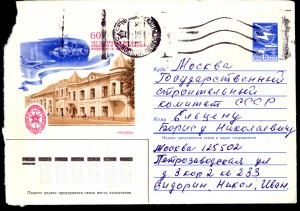 60
Куда
Москва
Государственный
строительный
комитет СССР
Кому
Ельцену
Борису Николаевичу
Индекс предприятия связи и адрес отправителя
Москва 125502
Петрозаводская ул
д 3 кор 2 кв 233
Сидорин, Никол, Иван.
МОСКВА
Пишите индекс предприятия связи места назначения